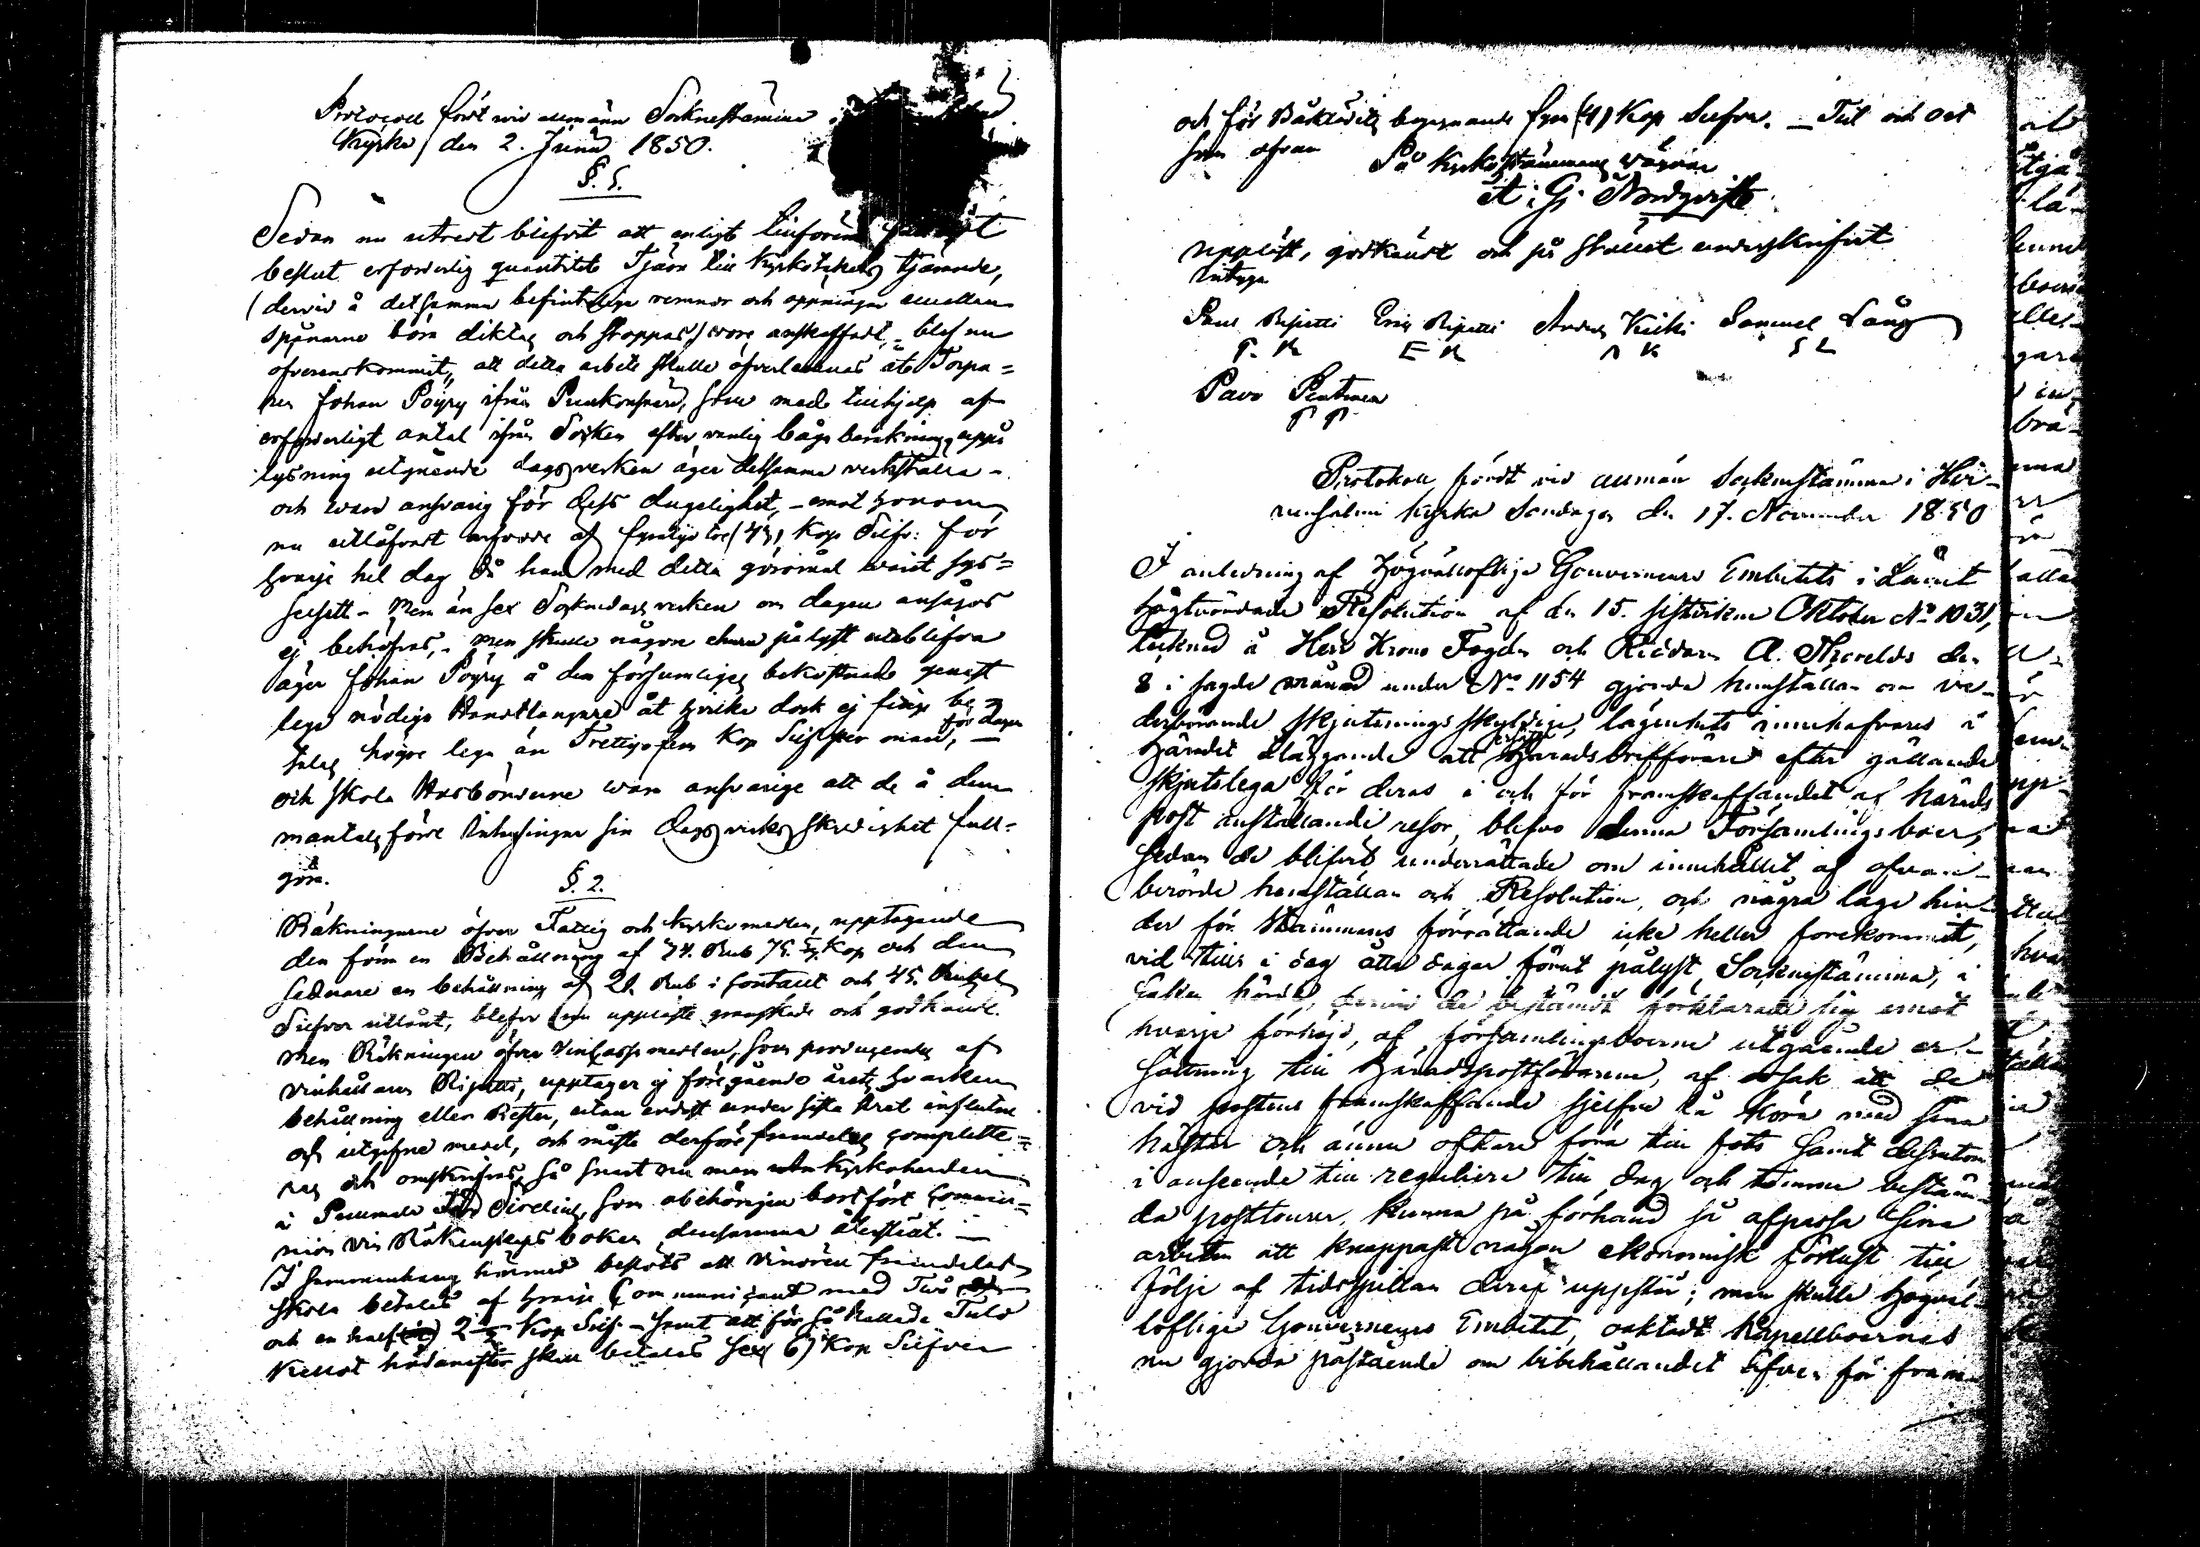 Protocoll fört wid allmänn Socknestämma i
Kyrka den 2. Junii 1850.
§. 1.
Sedan nu utredt blifvit att enligt tillförene
beslut erforderlig quantitet Tjära till Kyrkotakets tjärande,
(dervid å detsamma befintelige remnor och öppningar emellan
spånarne böra diktas och stoppas) wore anskaffadt, - blef nu
öfverenskommit, att detta arbete skulle öfverlemnas åt Torpa=
ren Johan Pöyry ifrån Punkonsaari, som med tillhjelp af
erforderligt antal ifrån Socken efter vanlig bågs beräkning uppå
lysning utgående dagsverken äger detsamma verkställa -
och vara ansvarig för dess duglighet, - emot honom
nu utlåfvadt arfvode af fyratijo tre (43) Kop Silfv: för
hvarje hel dag då han med detta göromål varit sys=
selsatt - Mera än sex Sockne dagsverken om dagen ansågos
ej behöfvas, - men skulle någon ehuru pålyst uteblifva
äger Johan Pöyry å den försumliges bekostnad genast
lega nödige Handtlangare åt hvilke dock ej finge be=
talas högre lega än Trettiofem Kop Silf per man, för dagen
och skola Husbönderne vara ansvarige att de å deras
mantal förde Inhysingar sin dagsverks skyldighet full=
göra.
§. 2.
Räkningarne öfver Fattig och Kyrkomedlen, upptagende
den förra en Behållning af 74. Rub 75. Kop och den
sednare en behållning af 21. Rub i Contant och 45. Rubel
Silfver utlånt, blefvo nu uppläste granskade och godkände.
Men Räkningen öfver Vincasse medlen, som producerades af
vinhållaren Ripatti, upptager ej föregående årets hvarken
behållning eller Rester, utan endast under sista året influtne
och utgifne medel, och måste derföre framdeles complette=
ras och omskrifvas, så snart nu mera Kyrkoherden
i Pielavesi Siöding, som obehörigen bortfört Commu=
nion vin Räkenskaps boken densamma återstäl. -
I sammanhang härmed beslöts att vinören framdeles
skola betalas af hvarje Communicant med Två
och en half 2 ½ Kop Silf - samt att för så kallade Tulo
Kellot hädanefter skall betalas sex (6) Kop Silfver
och för Båktårits begagnande fyra (4) Kop Silfver. - Tid och ort
som ofvan På Kyrkostämmans vägnar
A: G: Nordqvist
Uppläst, godkändt och på stället underskrifvit
intyga
Paul Ripatti Eric Ripatti Anders Kuikki Samuel Lång
P. R E R A K S L
Pavo Pentinen
P P
Protokoll, fördt vid allmän Sockenstämma i Hir-
vensalmi kyrka Söndagen den 17. November 1850
I anledning af Högvällofliga Gouverneurs Embetets i Länet
högtvördade Resolution af den 15. sistvikne Oktober No 1031,
tecknad å Herr Krono Fogden och Riddaren A. Thorelds den
8 i sagde månad under No 1154 gjorda hemställan om ve-
derbörande skjutsningsskyldige lägenhets innehafvares i
Häradet åläggande att ersätta Häradsbrefförare efter gällande
skjutslega för deras i och för framskaffandet af härads
post anställande resor, blefvo denna Församlings boer,
sedan de blifvit underrättade om innehållet af ofvan-
berörde hemställan och Resolution, och några laga hin-
der för Stämmans förrättande icke heller förekommit,
vid till i dag åtta dagar förut pålyst Sockenstämma, i
saken hörde, dervid de bestämdt förklarade sig emot
hvarje förhöjd, af församlingsboerne utgående er-
sättning till Häradspostförarne, af orsak att de
vid postens framskaffande sjelfve få köra med sina
hästar och ännu oftare föra till fots samt dessutom
i anseende till reguliera till dag och timme bestäm-
da posttourer, kunna på förhand så afpassa sina
arbeten att knappast någon ekonomisk förlust till
följe af tidsspillan deraf uppstår; men skulle Högväl-
loflige Gouverneurs Embetet, oaktadt Kapellboernas
nu gjorda påstående om bibehållandet äfven för fram-